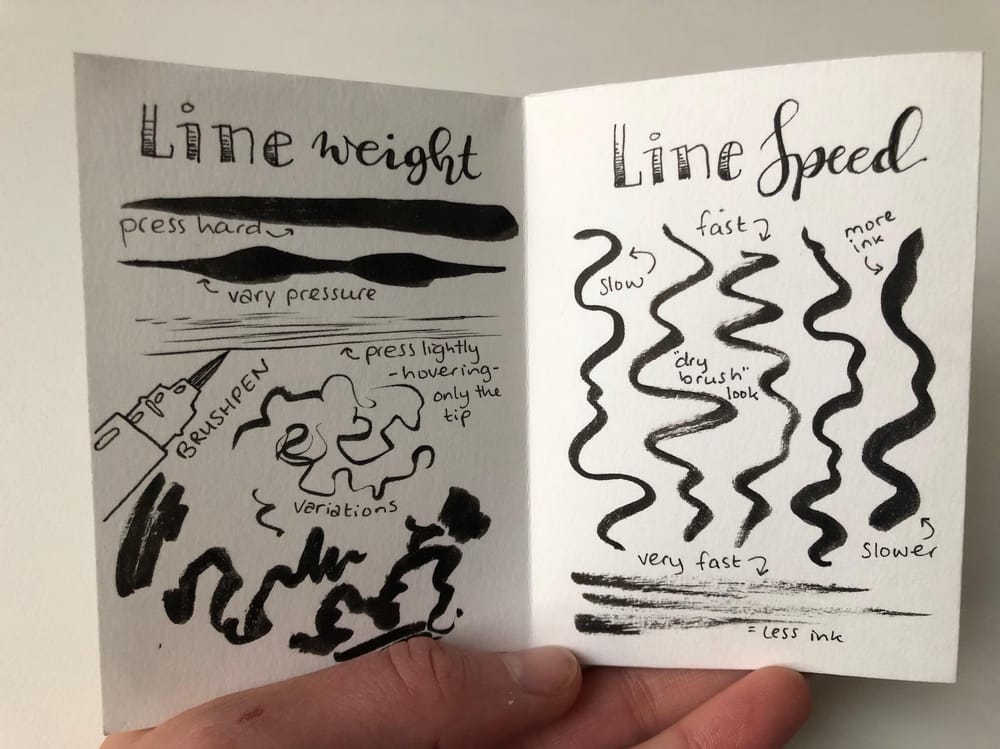 Line weight
press hard
vary pressure
press lightly
-hovering-
only the
tip
BRUSHPEN
variations
Line Speed
fast
slow
more
ink
"dry
brush"
look
slower
very fast
= Less ink